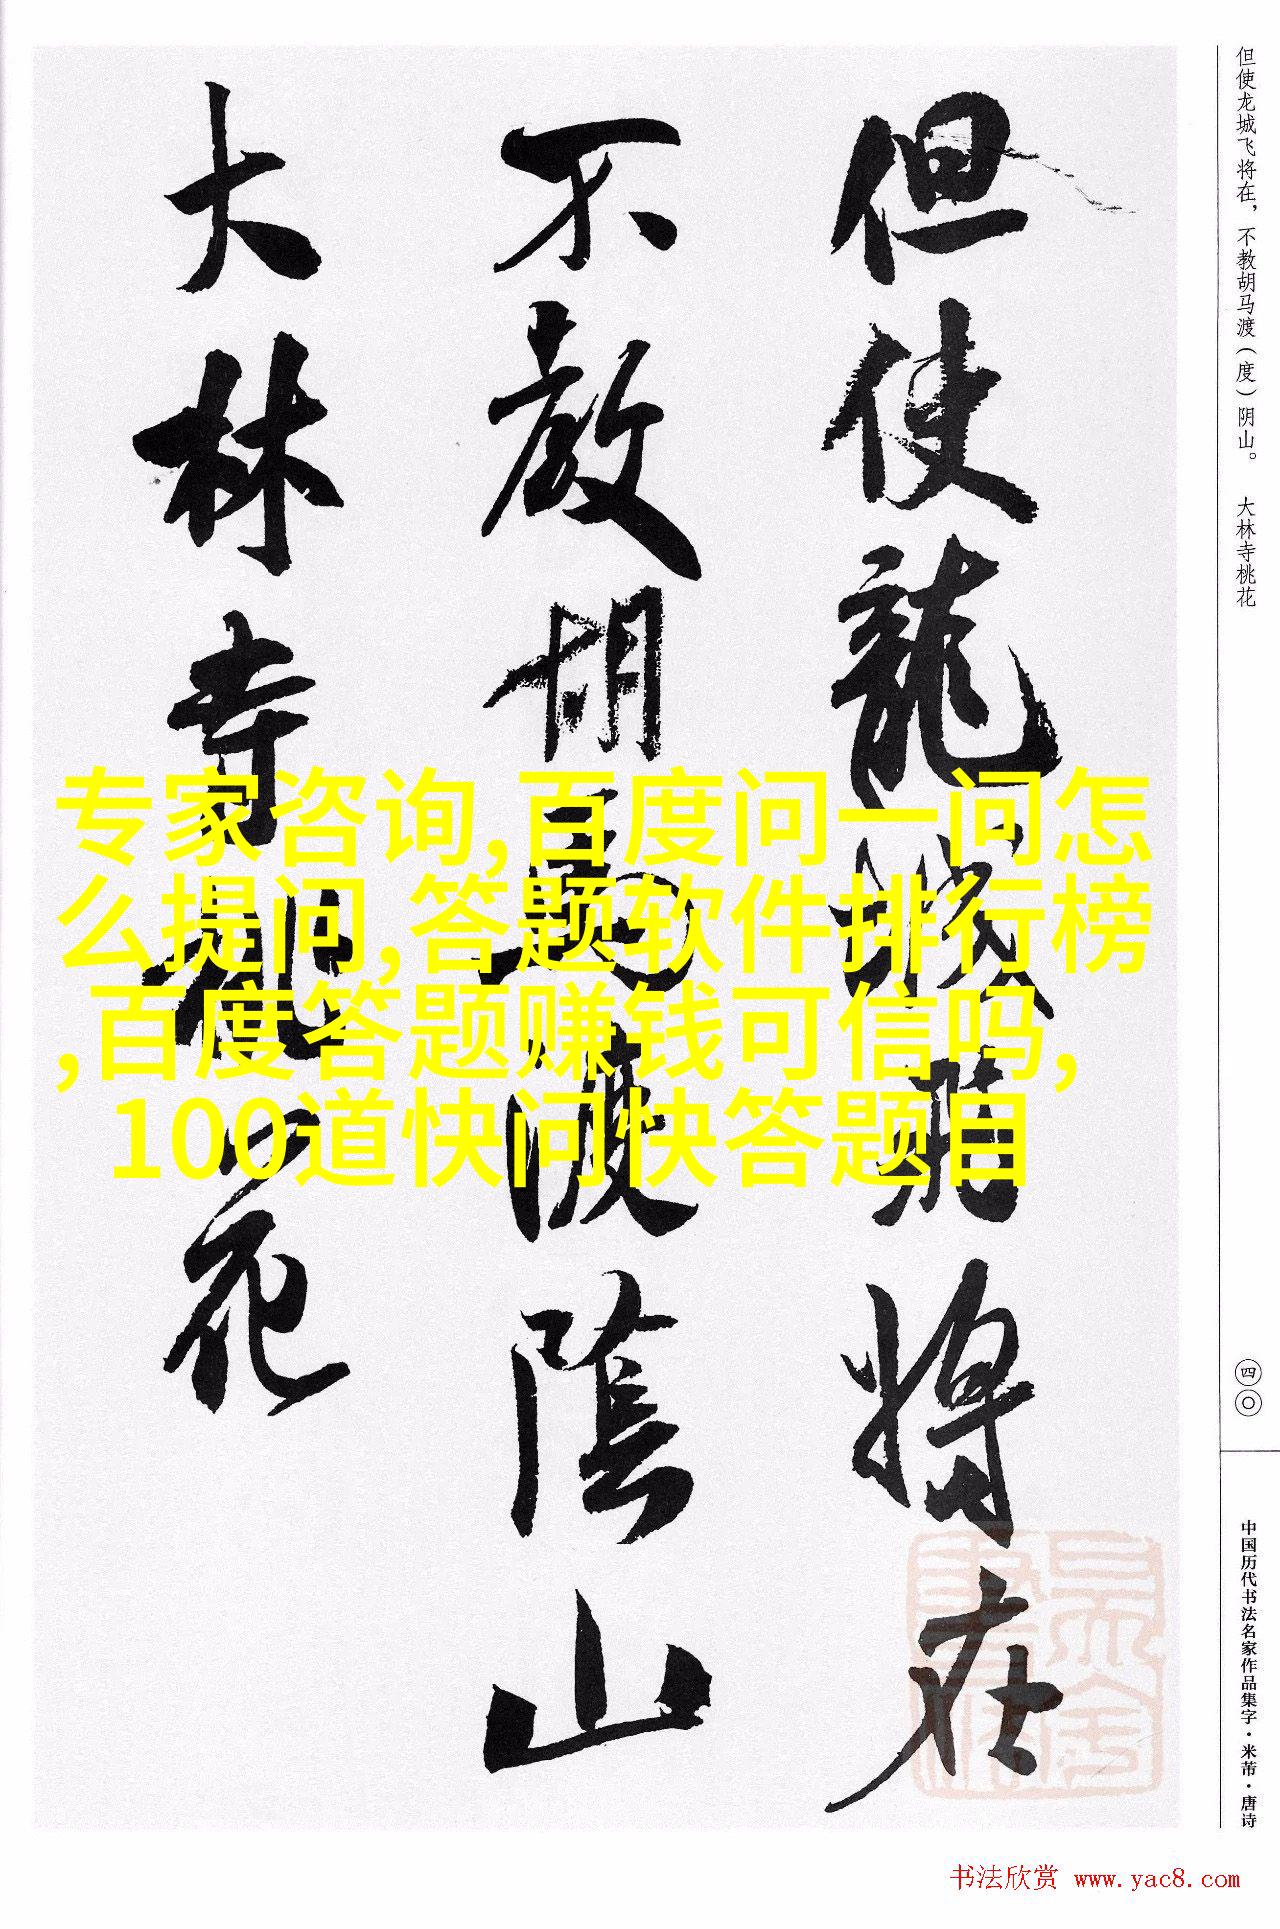 但使龍城飛將在
不教胡馬渡陰山
大林寺桃花
但使龙城飞将在，不教胡马渡（度）阴山。 大林寺桃花
四〇
中国历代书法名家作品集字·米芾·唐诗
专家咨询,百度问一问怎
么提问,答题软件排行榜
,百度答题赚钱可信吗,
100道快问快答题目
书法欣赏 www.yac8.com